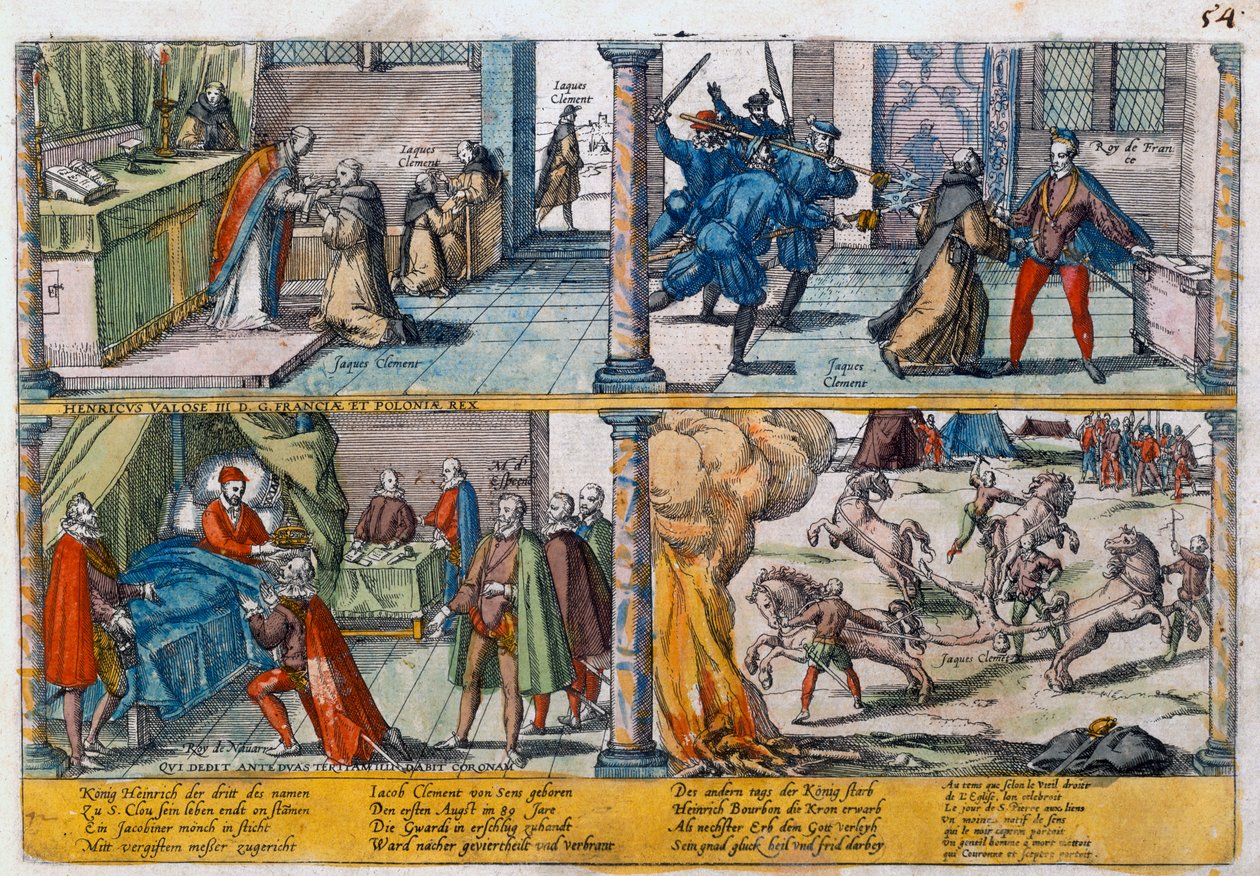 54
Iaques
Clement
Iaques
Clement
Jaques Clement
Roy de Fran
ce
Jaques
Clement
HENRICVS VALOSE III D. G. FRANCIÆ ET POLONIÆ REX
M. d'
Roy de Nauarr
QVI DEDIT ANTE DVAS DABIT CORONAM
Jaques Clement
König Heinrich der dritt des namen
Zu S. Clou sein leben endt on stamen
Ein Jacobiner mönch in sticht
Mitt vergiftem meßer zugericht
Iacob Clement von Sens geboren
Den ersten Augst im 89 Jare
Die Gwardi in erschlüg zuhandt
Ward nacher geviertheilt vnd verbrant
Des andern tags der König starb
Heinrich Bourbon die Kron erwarb
Als nechster Erb dem Gott verleyh
Sein gnad gluck heil vnd frid darbey
Au tems que selon le vieil droict
de L'Eglise, lon celebroit
Le jour de S. Pierre aux liens
Vn moine natif de sens
qui le noir capron portoit
Vn gentil homme à mort mettoit
qui Couronne et sceptre portoit.